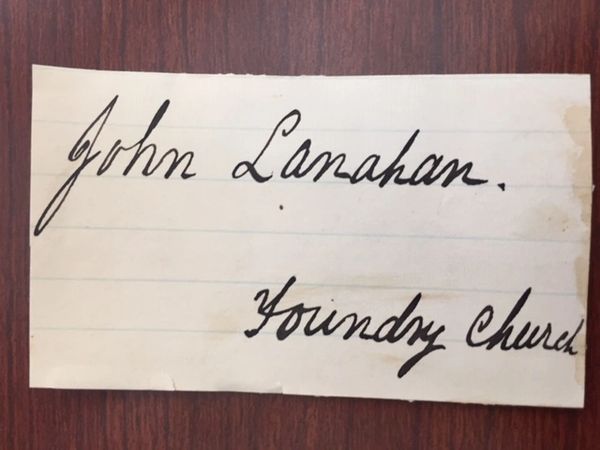 John Lanahan.
Foundry Church